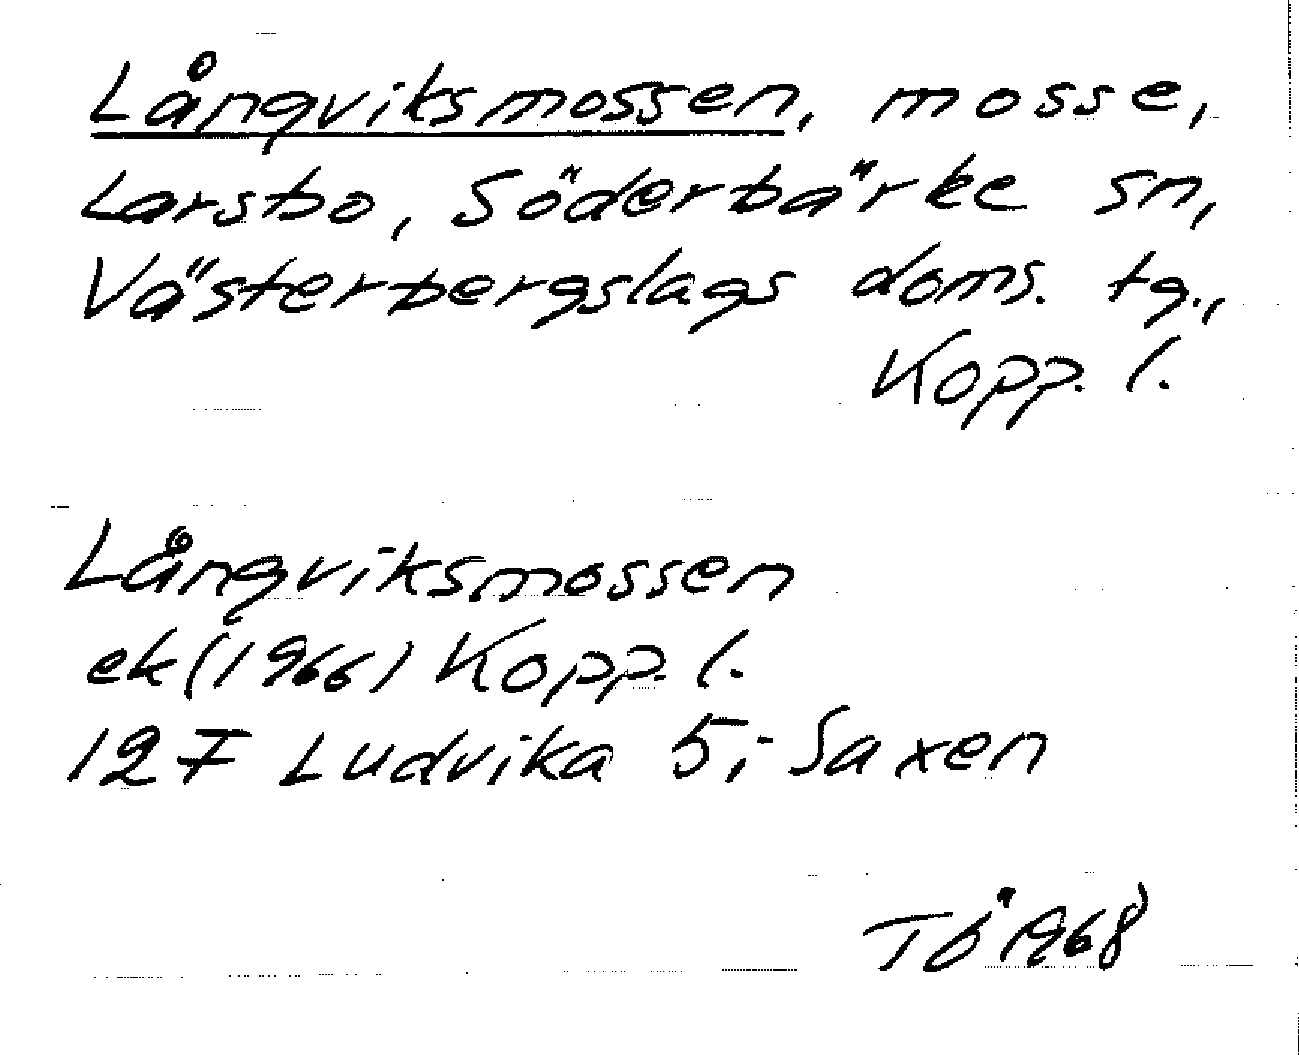 Långviksmossen, mosse,
Larsbo, Söderbärke sn,
Västerbergslags doms. tg.,
Kopp. l.
Långviksmossen
ek (1966) Kopp. l.
12F Ludvika 5i Saxen
TÖ 1968